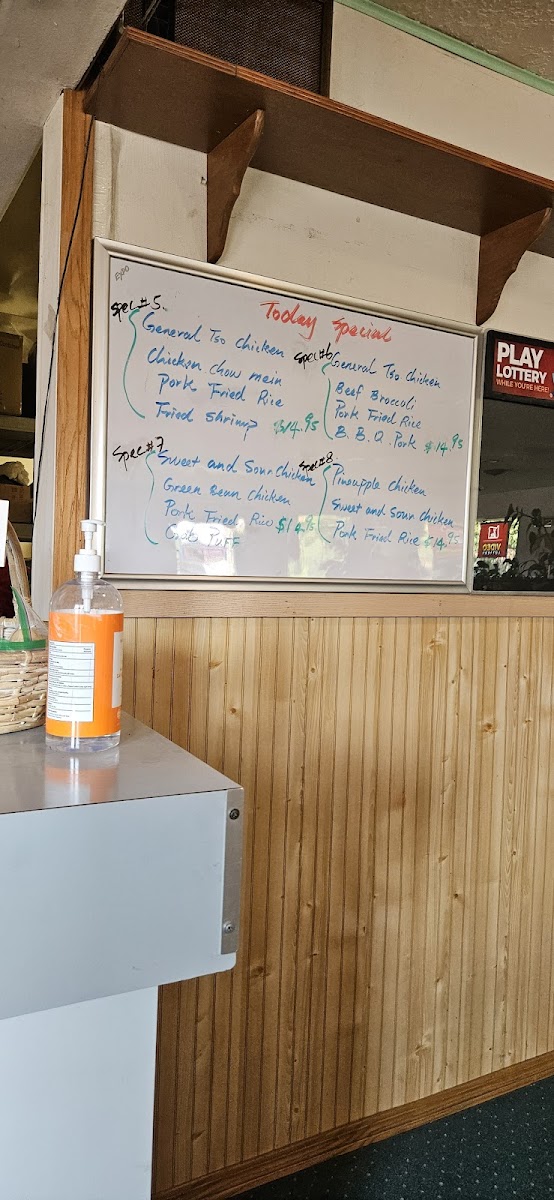 EXPO
Today Special
Spec#5.
General Tso Chicken
Chicken chow mein
Pork Fried Rice
Fried shrimp $14.95
Spec#6
General Tso Chicken
Beef Broccoli
Pork Fried Rice
B.B.Q. Pork $14.95
Spec#7
Sweet and Sour Chicken
Green Bean Chicken
Pork Fried Rice $14.95
Crab Puff
Spec#8
Pineapple Chicken
Sweet and Sour Chicken
Pork Fried Rice $14.95
PLAY
LOTTERY
WHILE YOU'RE HERE!
VIDEO